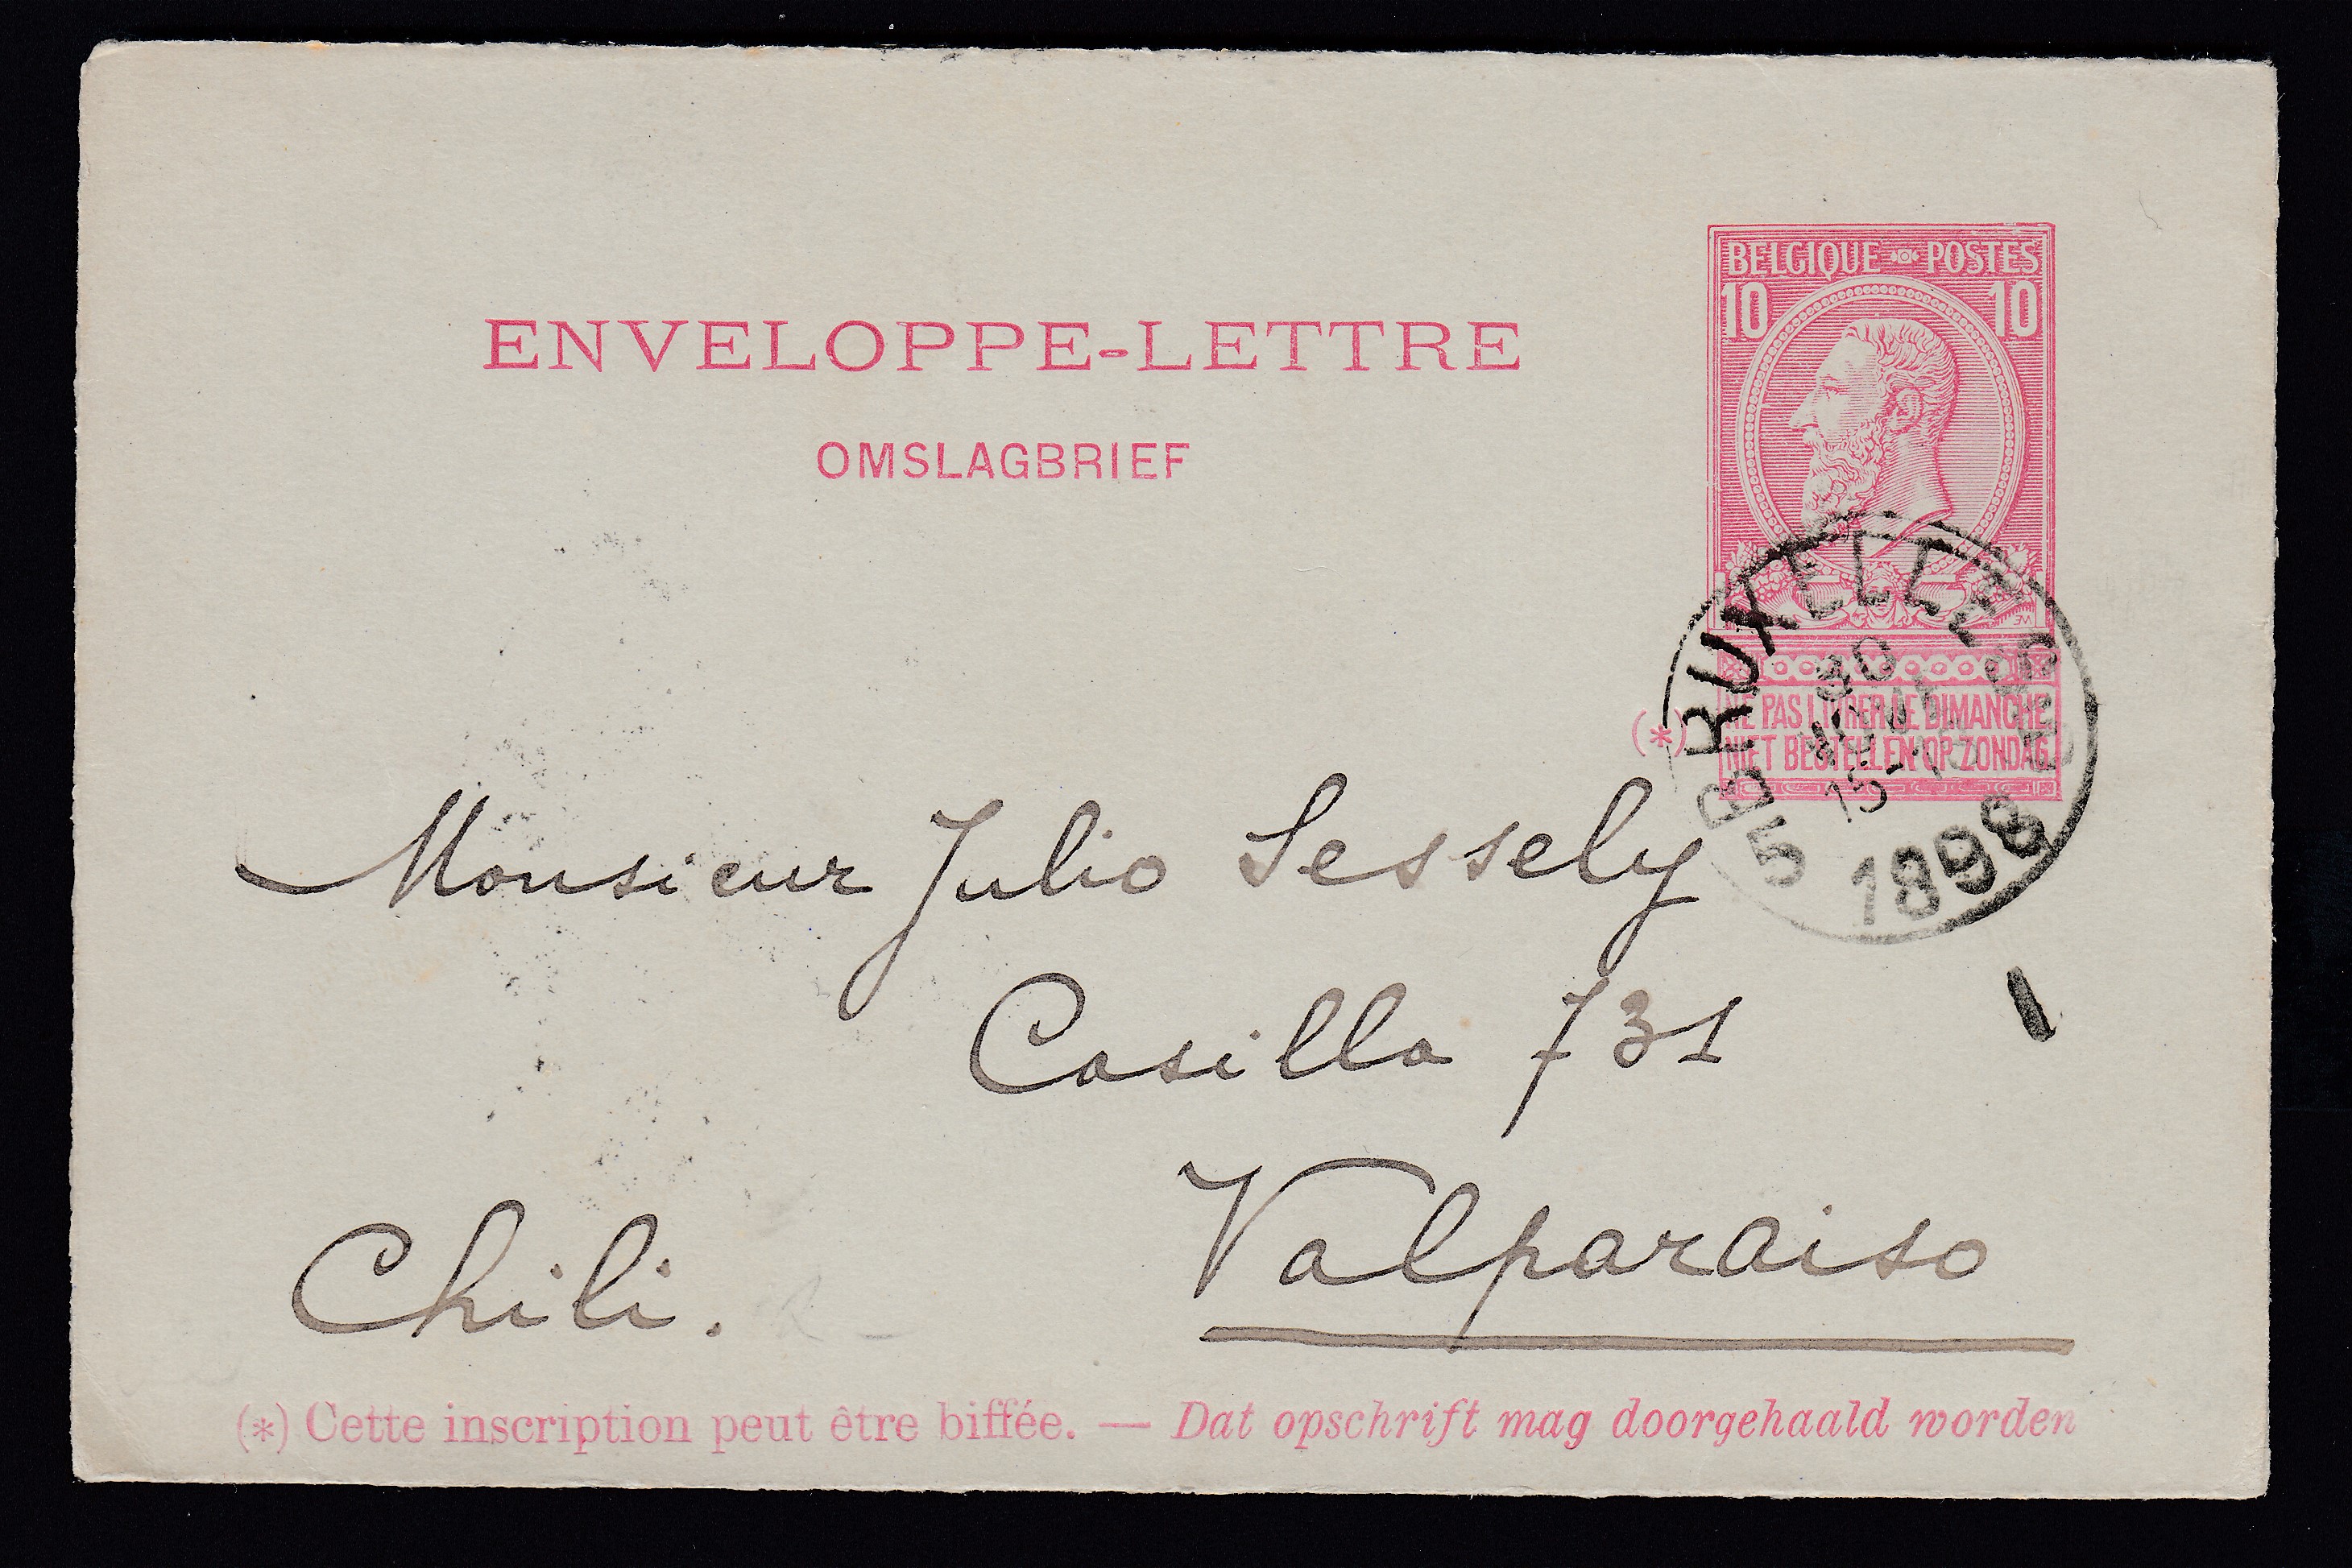 BELGIQUE POSTES
10 10
ENVELOPPE-LETTRE
OMSLAGBRIEF
BRUXELLES
30
15-
5
1898
(*)
NE PAS LIVRER LE DIMANCHE
NIET BESTELLEN OP ZONDAG
Monsieur Julio Sessely
Casilla 731
Valparaiso
Chili.
(*) Cette inscription peut être biffée. — Dat opschrift mag doorgehaald worden